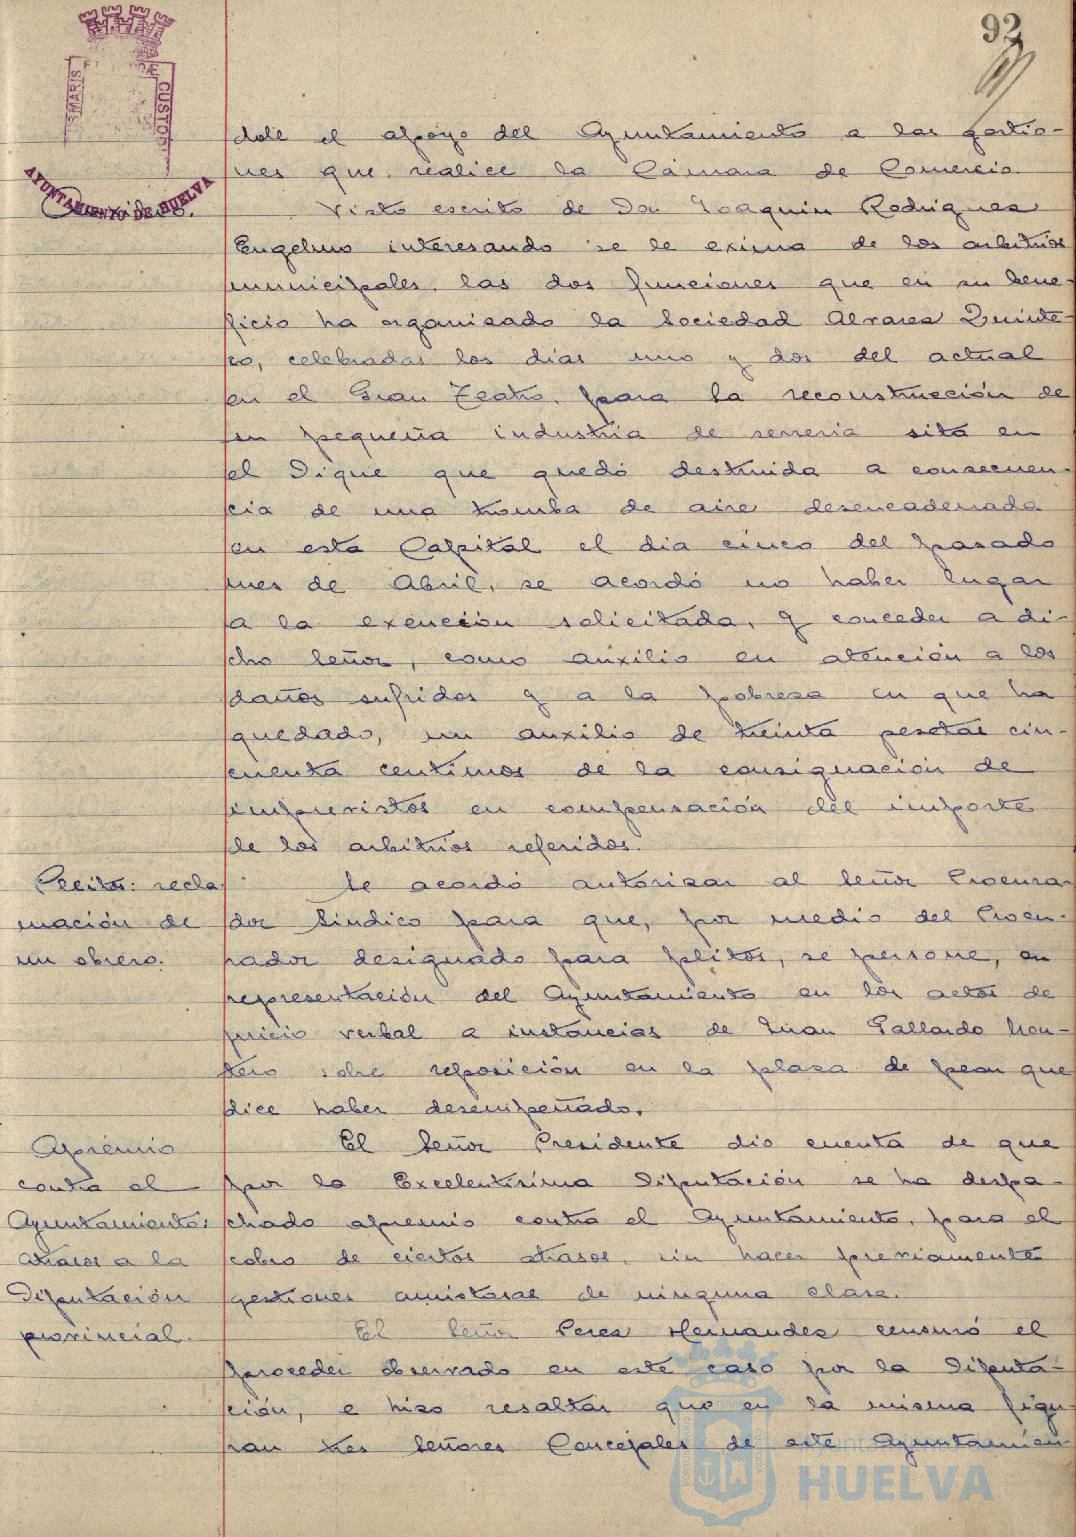 92
S MARIS
CUSTODI
AYUNTAMIENTO DE HUELVA
dole el apoyo del Ayuntamiento a las gestio-
nes que realice la Cámara de Comercio.
Visto escrito de Don Joaquin Rodriguez
Engelmo interesando se le exima de los arbitrios
municipales las dos funciones que en su bene-
ficio ha organizado la Sociedad Alvarez Quinte-
ro, celebradas los dias uno y dos del actual
en el Gran Teatro, para la reconstrucción de
su pequeña industria de serreria sita en
el Dique que quedó destruida a consecuen-
cia de una tromba de aire desencadenada
en esta Capital el dia cinco del pasado
mes de Abril, se acordó no haber lugar
a la exención solicitada, y conceder a di-
cho Señor, como auxilio en atención a los
daños sufridos y a la pobreza en que ha
quedado, un auxilio de treinta pesetas cin-
cuenta centimos de la consignación de
imprevistos en compensación del importe
de los arbitrios referidos.
Pleitos: recla-
mación de
un obrero.
Se acordó autorizar al Señor Procura-
dor Sindico para que, por medio del Procu-
rador designado para pleitos, se persone, en
representación del Ayuntamiento en los actos de
juicio verbal a instancias de Juan Gallardo Mon-
tero sobre reposición en la plaza de peon que
dice haber desempeñado.
Apremio
contra el
Ayuntamiento:
atrasos a la
Diputación
provincial.
El Señor Presidente dio cuenta de que
por la Excelentisima Diputación se ha despa-
chado apremio contra el Ayuntamiento, para el
cobro de ciertos atrasos, sin hacer previamente
gestiones amistosas de ninguna clase.
El Señor Perez Hernandez censuró el
proceder observado en este caso por la Diputa-
ción, e hizo resaltar que en la misma figu-
ran tres Señores Concejales de este Ayuntamien-
HUELVA